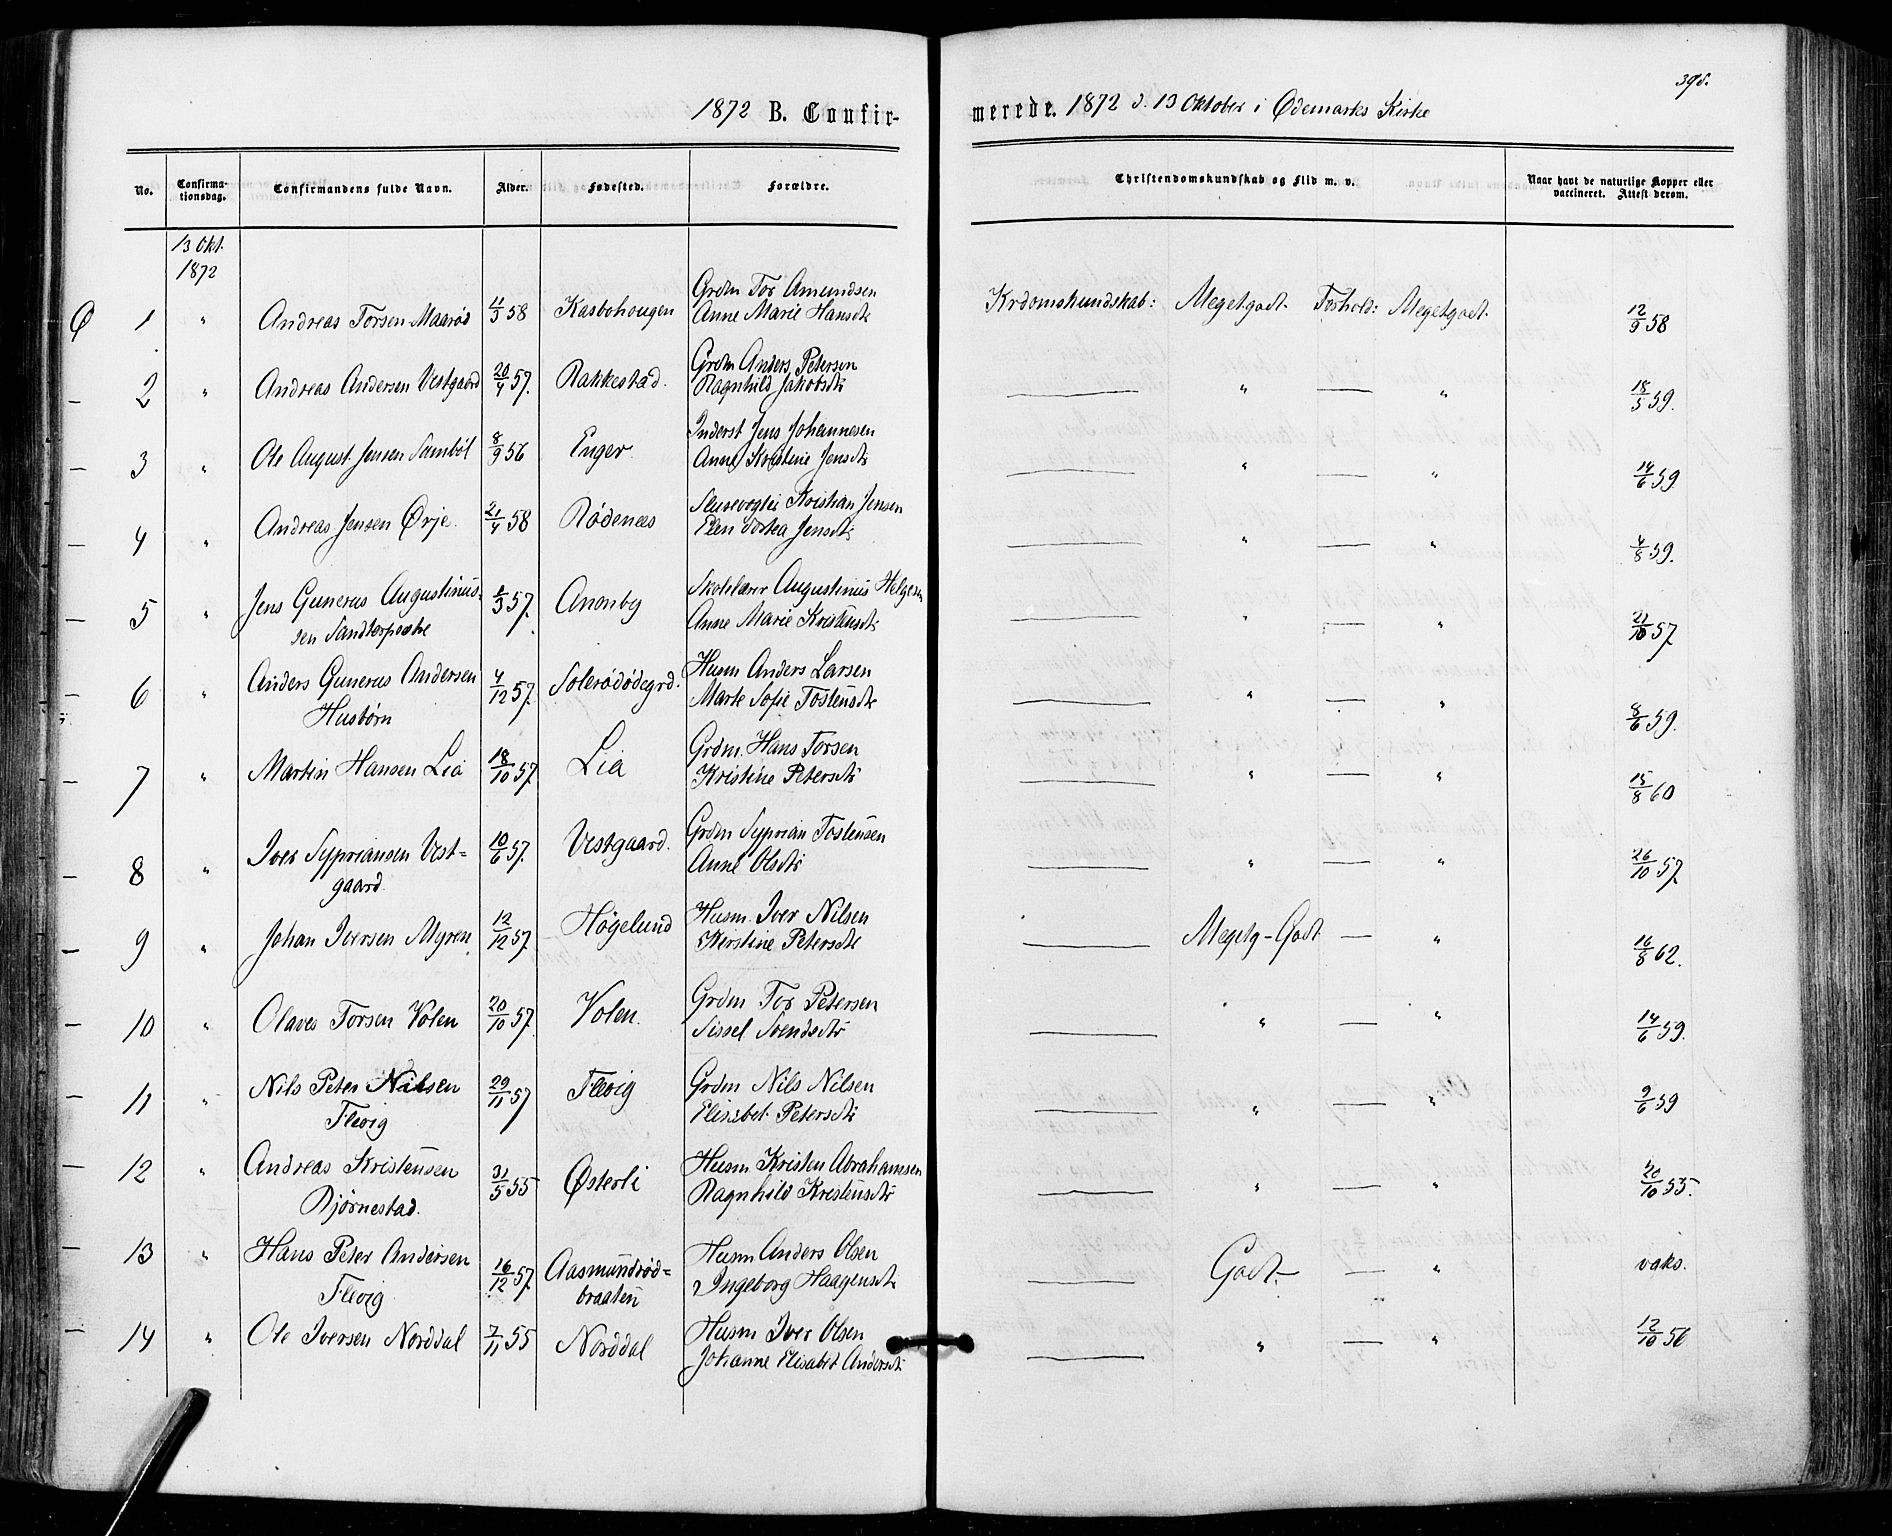 395.
1872 B. Confirmerede. 1872 d. 13 Oktober i Ødemarks Kirke
No. Confirmationsdag. Confirmandens fulde Navn. Alder. Fødested. Forældre. Christendomskundskab og Flid m. v. Naar havt de naturlige Kopper eller vaccineret. Attest derom.
13 Okt.
1872
Ø 1 " Andreas Torsen Maarød 11/3 58 Kasbohougen Grdm Tor Amundsen
Anne Marie Hansdtr Krdomskundskab: Megetgodt. Forhold: Megetgodt. 12/9 58
— 2 " Andreas Andersen Vestgaard 20/4 57. Rakkestad. Grdm Anders Petersen
Ragnhild Jakobsdtr — " — " 18/5 59.
— 3 " Ole August Jensen Sambøl 8/9 56 Enger Inderst Jens Johannesen
Anne Kristine Jensdtr — " — " 14/6 59
— 4 " Andreas Jensen Ørje. 21/4 58 Rødenes Slusevogter Kristian Jensen
Elen Dortea Jensdtr — " — " 4/8 59.
— 5 " Jens Gunerus Augustinus-
sen Sandtorpektre 57. Anonby Skolelærer Augustinus Helgesen
Anne Marie Kristensdtr — " — " 21/10 57
— 6 " Anders Gunerus Andersen
Husbørn 4/12 57. Solerødødegrd. Husm Anders Larsen
Marte Sofie Tostensdtr — " — " 8/6 59.
— 7 " Martin Hansen Lia 18/10 57. Lia Grdm. Hans Torsen
Kristine Petersdtr — " — " 15/8 60
— 8 " Iver Sypriansen Vest-
gaard. 10/6 57. Vestgaard. Grdm Syprian Tostensen
Anne Olsdtr — " — " 26/10 57.
— 9 " Johan Iversen Myren 12/12 57. Høgelund Husm. Iver Nilsen
Kirstine Petersdtr — Megetg-Godt — " 16/8 62.
— 10 " Olaves Torsen Volen 20/10 57. Volen. Grdm Tor Petersen
Sissel Svendsdtr — " — " 14/6 59.
— 11 " Nils Peter Nilsen
Flevig 29/11 57 Flevig Grdm Nils Nilsen
Elisabet Petersdtr — " — " 9/6 59
— 12 " Andreas Kristensen
Bjørnestad. 31/5 55 Østerli Husm Kristen Abrahamsen
Ragnhild Kristensdtr — " — " 20/10 55.
— 13 " Hans Peter Andersen
Flevig. 16/12 57. Aasmundrød-
braaten Husm Anders Olsen
Ingeborg Haagensdtr — Godt — — " vaks.
— 14 " Ole Iversen Norddal 7/11 55 Norddal Husm Iver Olsen
Johanne Elisabet Andersdtr — " — " 12/10 56